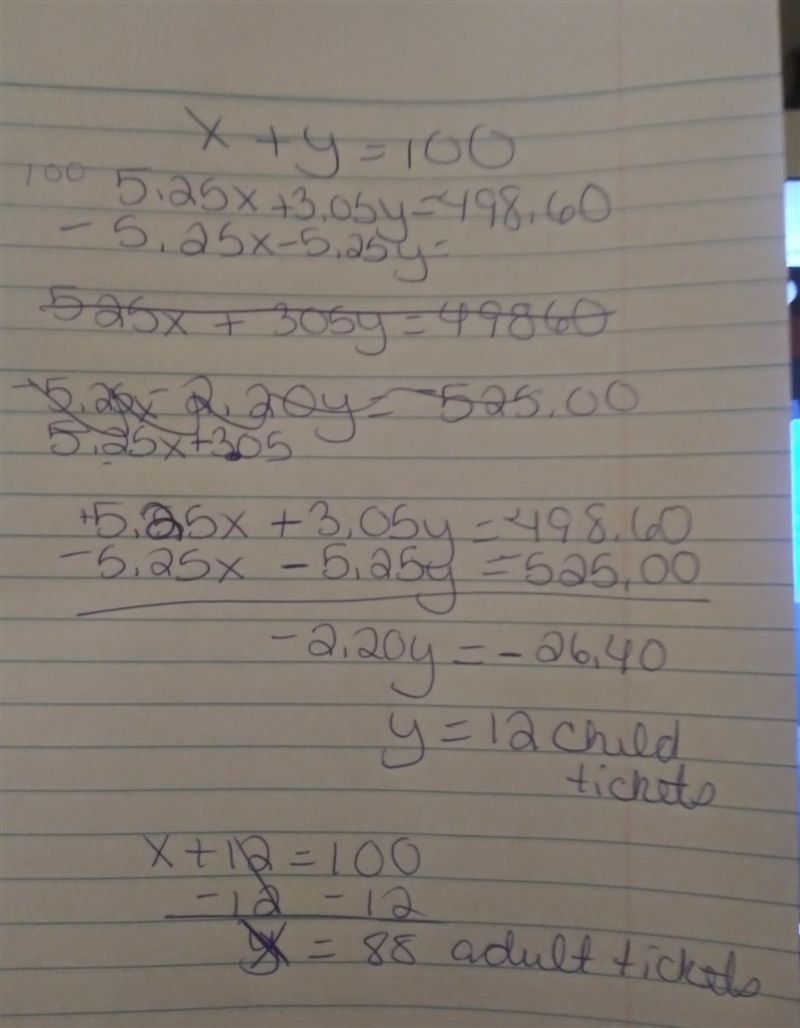 x + y = 100
100 5.25x + 3.05y = 498.60
- 5.25x - 5.25y =
525x + 305y = 49860
-5.25x - 2.20y = -525.00
5.25x + 305
+5.25x + 3.05y = 498.60
-5.25x - 5.25y = 525.00
-2.20y = -26.40
y = 12 child
tickets
x + 12 = 100
-12 -12
x = 88 adult tickets